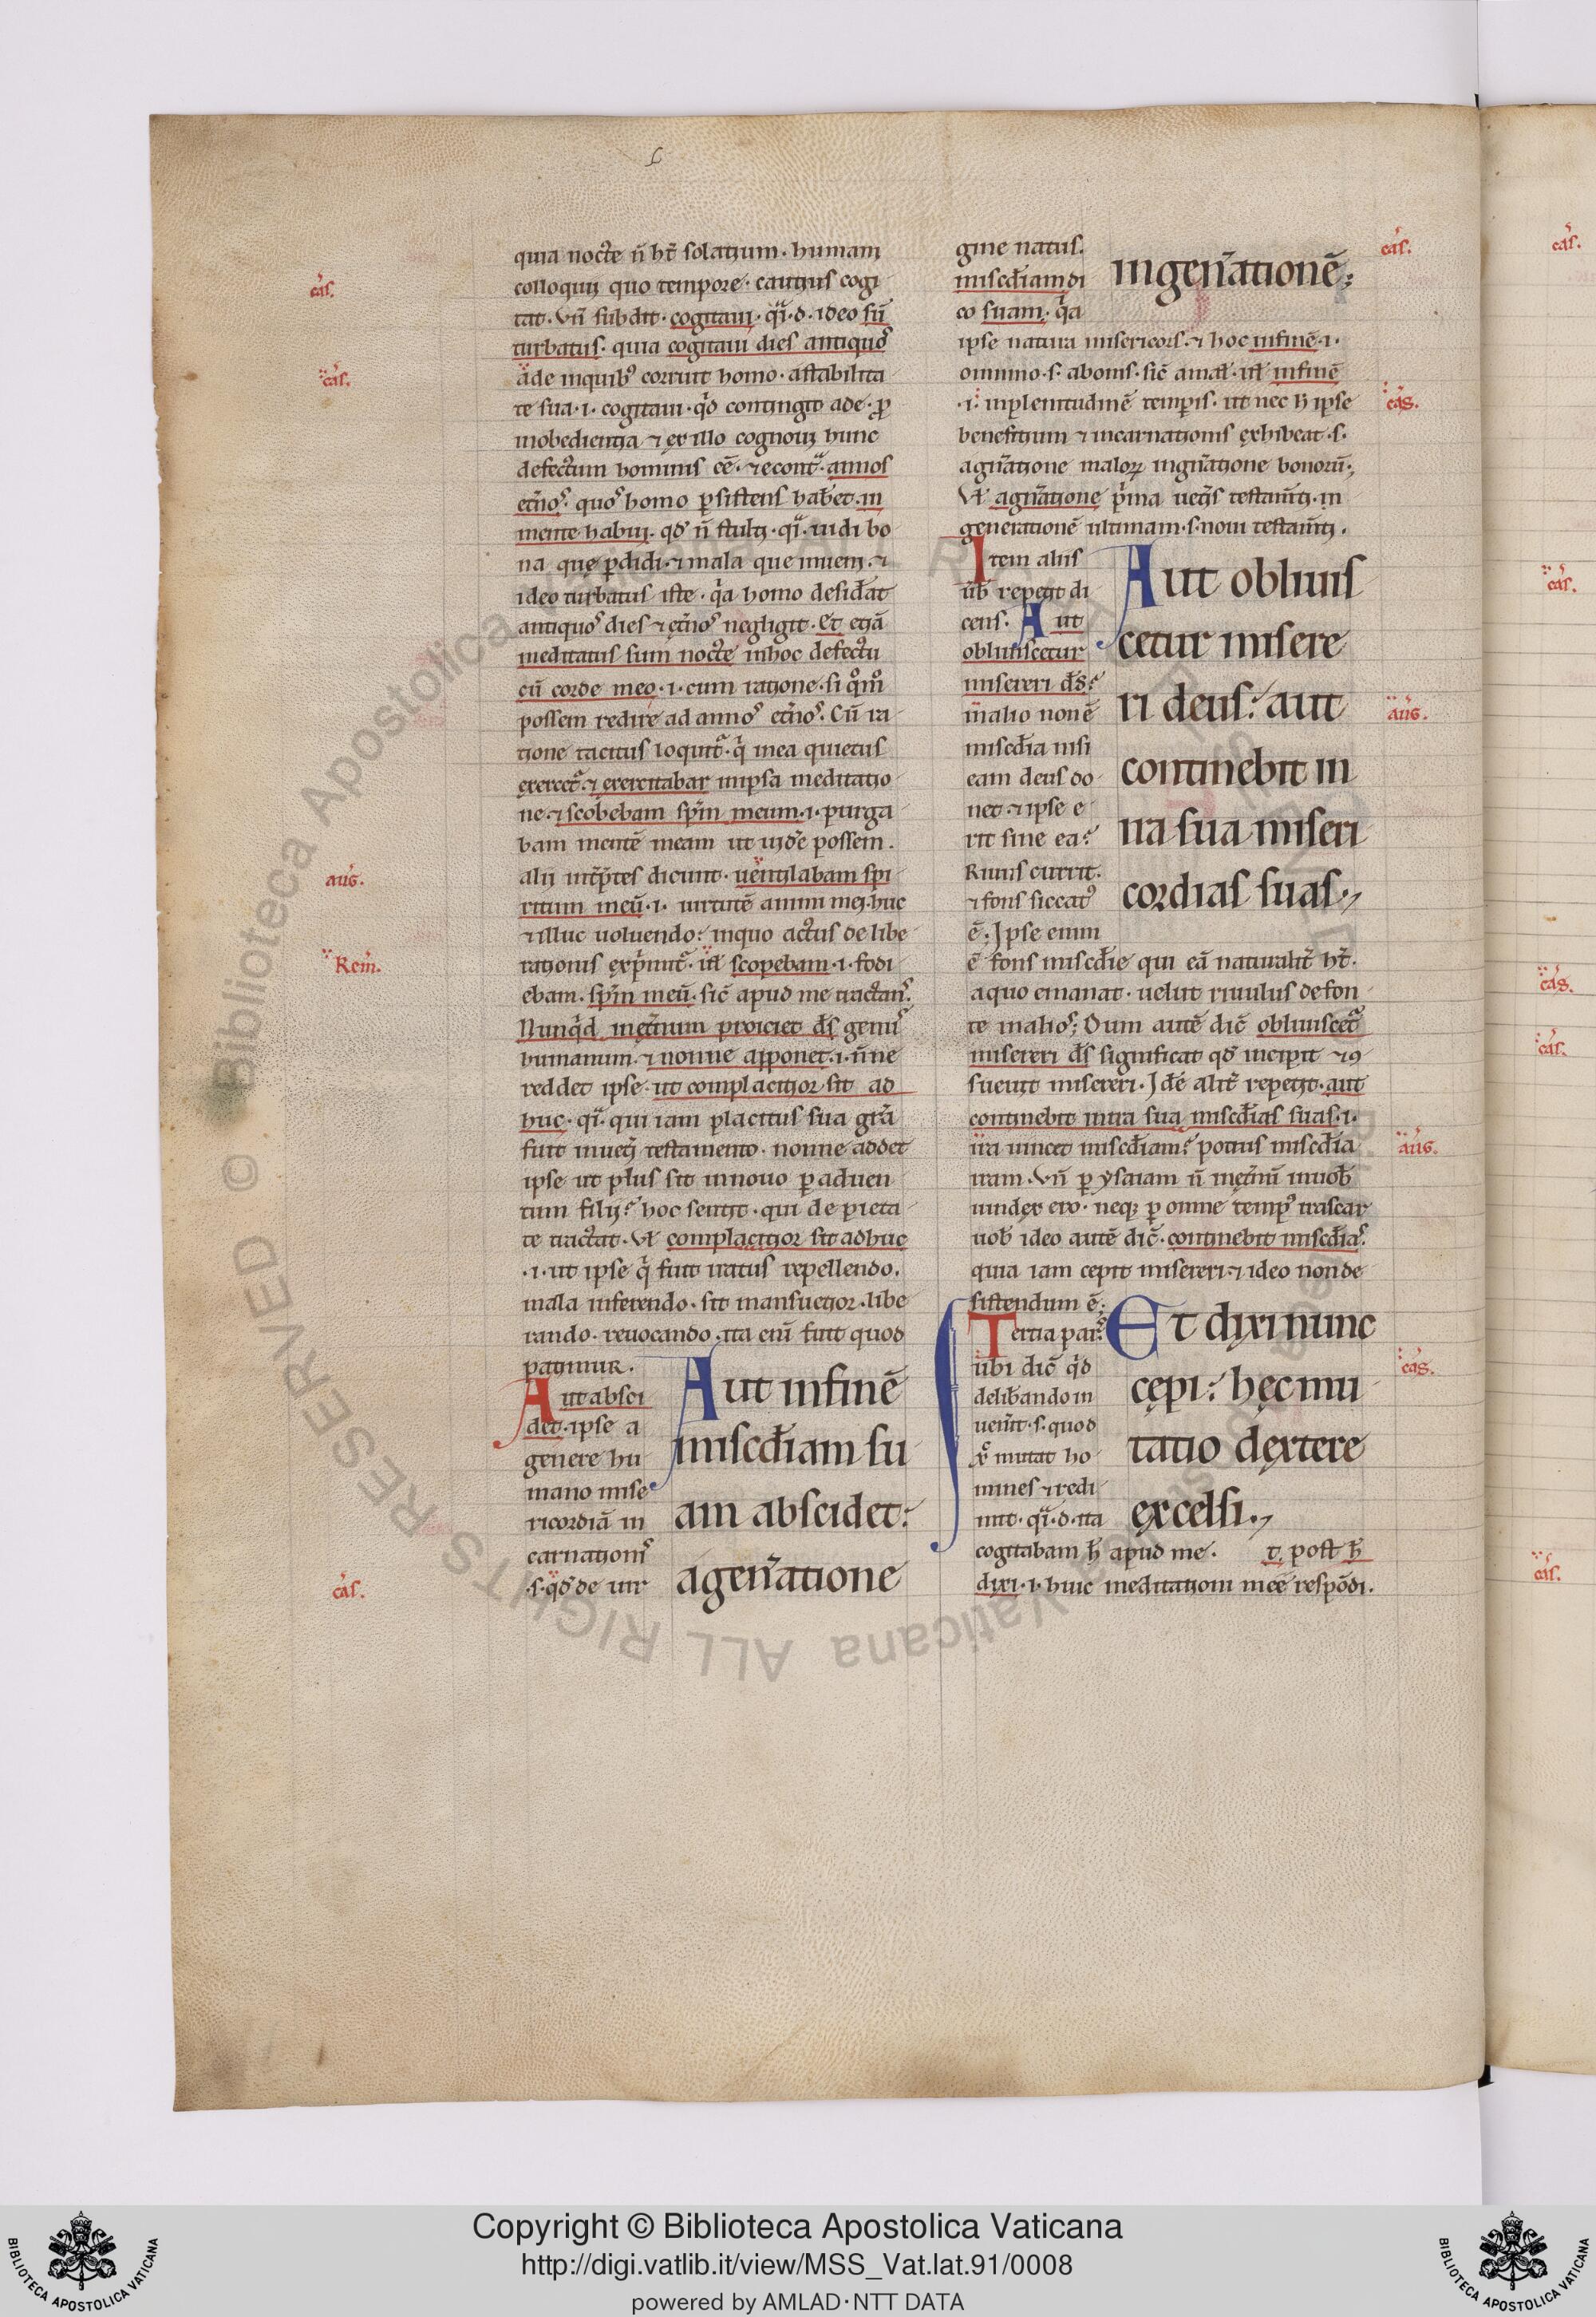 quia nocte n̄ ht̄ solatium. humani
colloquii quo tempore. cautius cogi
tat. vn̄ subdit. cogitaui. q̄i.d. ideo sū
turbatus. quia cogitaui dies antiquos
ade inquibꝰ corruit homo. astabilita
te sua .i. cogitaui. qd̄ contingit ade. ꝑ
inobedientia ⁊ ex illo cognoui hunc
defectum hominis eē. ⁊ econtᵃ. annos
et̄nos. quos homo ꝑsistens hab̄et. in
mente habui. qd̄ n̄ stulti. q̄i. uidi bo
na quę ꝑdidi. ⁊ mala que inueni. ⁊
ideo turbatus iste. qᵃ homo desid̄at
antiquos dies ⁊ et̄nos negligit. Et etiā
meditatus sum nocte inhoc defectu
cū corde meo .i. cum ratione. si qͦmͦ
possem redire ad annos et̄nos. Cū ra
tione tacitus loquitᵃ. qⁱ mea quietus
exercetᵃ. ⁊ exercitabar inipsa meditatio
ne. ⁊ scobebam sp̄m meum .i. purga
bam mentē meam ut uid̄e possem.
alii int̄p̄tes dicunt. uentilabam spi
ritum meū .i. uirtutē animi mei. huc
⁊ illuc uoluendo. inquo actus delibe
rationis exp̄mitᵃ. ul̄ scopebam .i. fodi
ebam. sp̄m meū. sic̄ apud me tractans.
Nunqⁱd inet̄num proiciet ds̄ genus
humanum. ⁊ nonne apponet .i. n̄ne
reddet ipse. ut complacitior sit ad
huc. q̄i. qui iam placitus sua gr̄a
fuit inueti testamento. nonne addet
ipse ut plus sit innouo ꝑ aduen
tum filii? hoc sentit. qui de pieta
te tractat. Vl̄ complacitior sit adhuc
.i. ut ipse qⁱ fuit iratus repellendo.
mala inferendo. sit mansuetior. libe
rando. reuocando. ita enī fuit quod
patimur.
Aut absci
det. ipse a
genere hu
mano mise
ricordiā in
carnationis
.s. qd̄ de uir
Aut infinē
miscd̄iam su
am abscidet:
agen̄atione
gine natus.
miscd̄iam di
co suam. qᵃ
ingen̄ationē:
ipse natura misericors. ⁊ hoc infinē .i.
omnino .s. abonis. sic̄ amal̄. ul̄ infinē
.i. inplenitudinē temꝑis. ut nec h̄ ipse
benefitium ⁊ incarnationis exhibeat .s.
agn̄atione malorꝝ ingn̄atione bonorū.
Vl̄ agn̄atione pⁱma uetis testam̄ti. in
generationē ultimam .s. noui testam̄ti.
Item aliis
ūb repetit di
cens. Aut
obliuiscetur
misereri ds̄?
inalio non ē
miscd̄ia nisi
eam deus do
net. ⁊ ipse e
rit sine ea?
Riuus currit.
⁊ fons siccatꝰ
ē. Ipse enim
Aut obliuis
cetur misere
ri deus? aut
continebit in
ira sua miseri
cordias suas.
ē fons miscd̄ie qui eā naturalit̄ ht̄.
aquo emanat. uelut riuulus de fon
te inalios; Dum autē dic̄ obliuiscetᵃ
misereri ds̄ significat qd̄ incipit ⁊ ꝯ
sueuit misereri. Idē alit̄ repetit. aut
continebit inira sua miscd̄ias suas .i.
ira uincet miscd̄iam? potius miscd̄ia
iram. Vn̄ ꝑ ysaiam n̄ inet̄nū inuob̄
uindex ero. neqꝫ ꝑ omne tempꝰ irascar
uob̄ ideo autē dic̄. continebit miscd̄ias.
quia iam cepit misereri. ⁊ ideo non de
sistendum ē.
Tertia pars.
ubi dic̄ qd̄
delib̄ando in
uenit .s. quod
mutat ho
mines ⁊ redi
mit. q̄i.d. ita
Et dixi nunc
cępi: hęc mu
tatio dextere
excelsi.
cogitabam h̄ apud me. ⁊ post h̄
dixi .i. huic meditationi meę respōdi.
cas.
cas.
aug.
Rem̄.
cas.
cas.
cas.
aug.
aug.
cas.
cas.
cas.
cas.
cas.
cas.
© Biblioteca Apostolica Vaticana ALL RIGHTS RESERVED
Copyright © Biblioteca Apostolica Vaticana
http://digi.vatlib.it/view/MSS_Vat.lat.91/0008
powered by AMLAD·NTT DATA
BIBLIOTECA APOSTOLICA VATICANA
BIBLIOTECA APOSTOLICA VATICANA